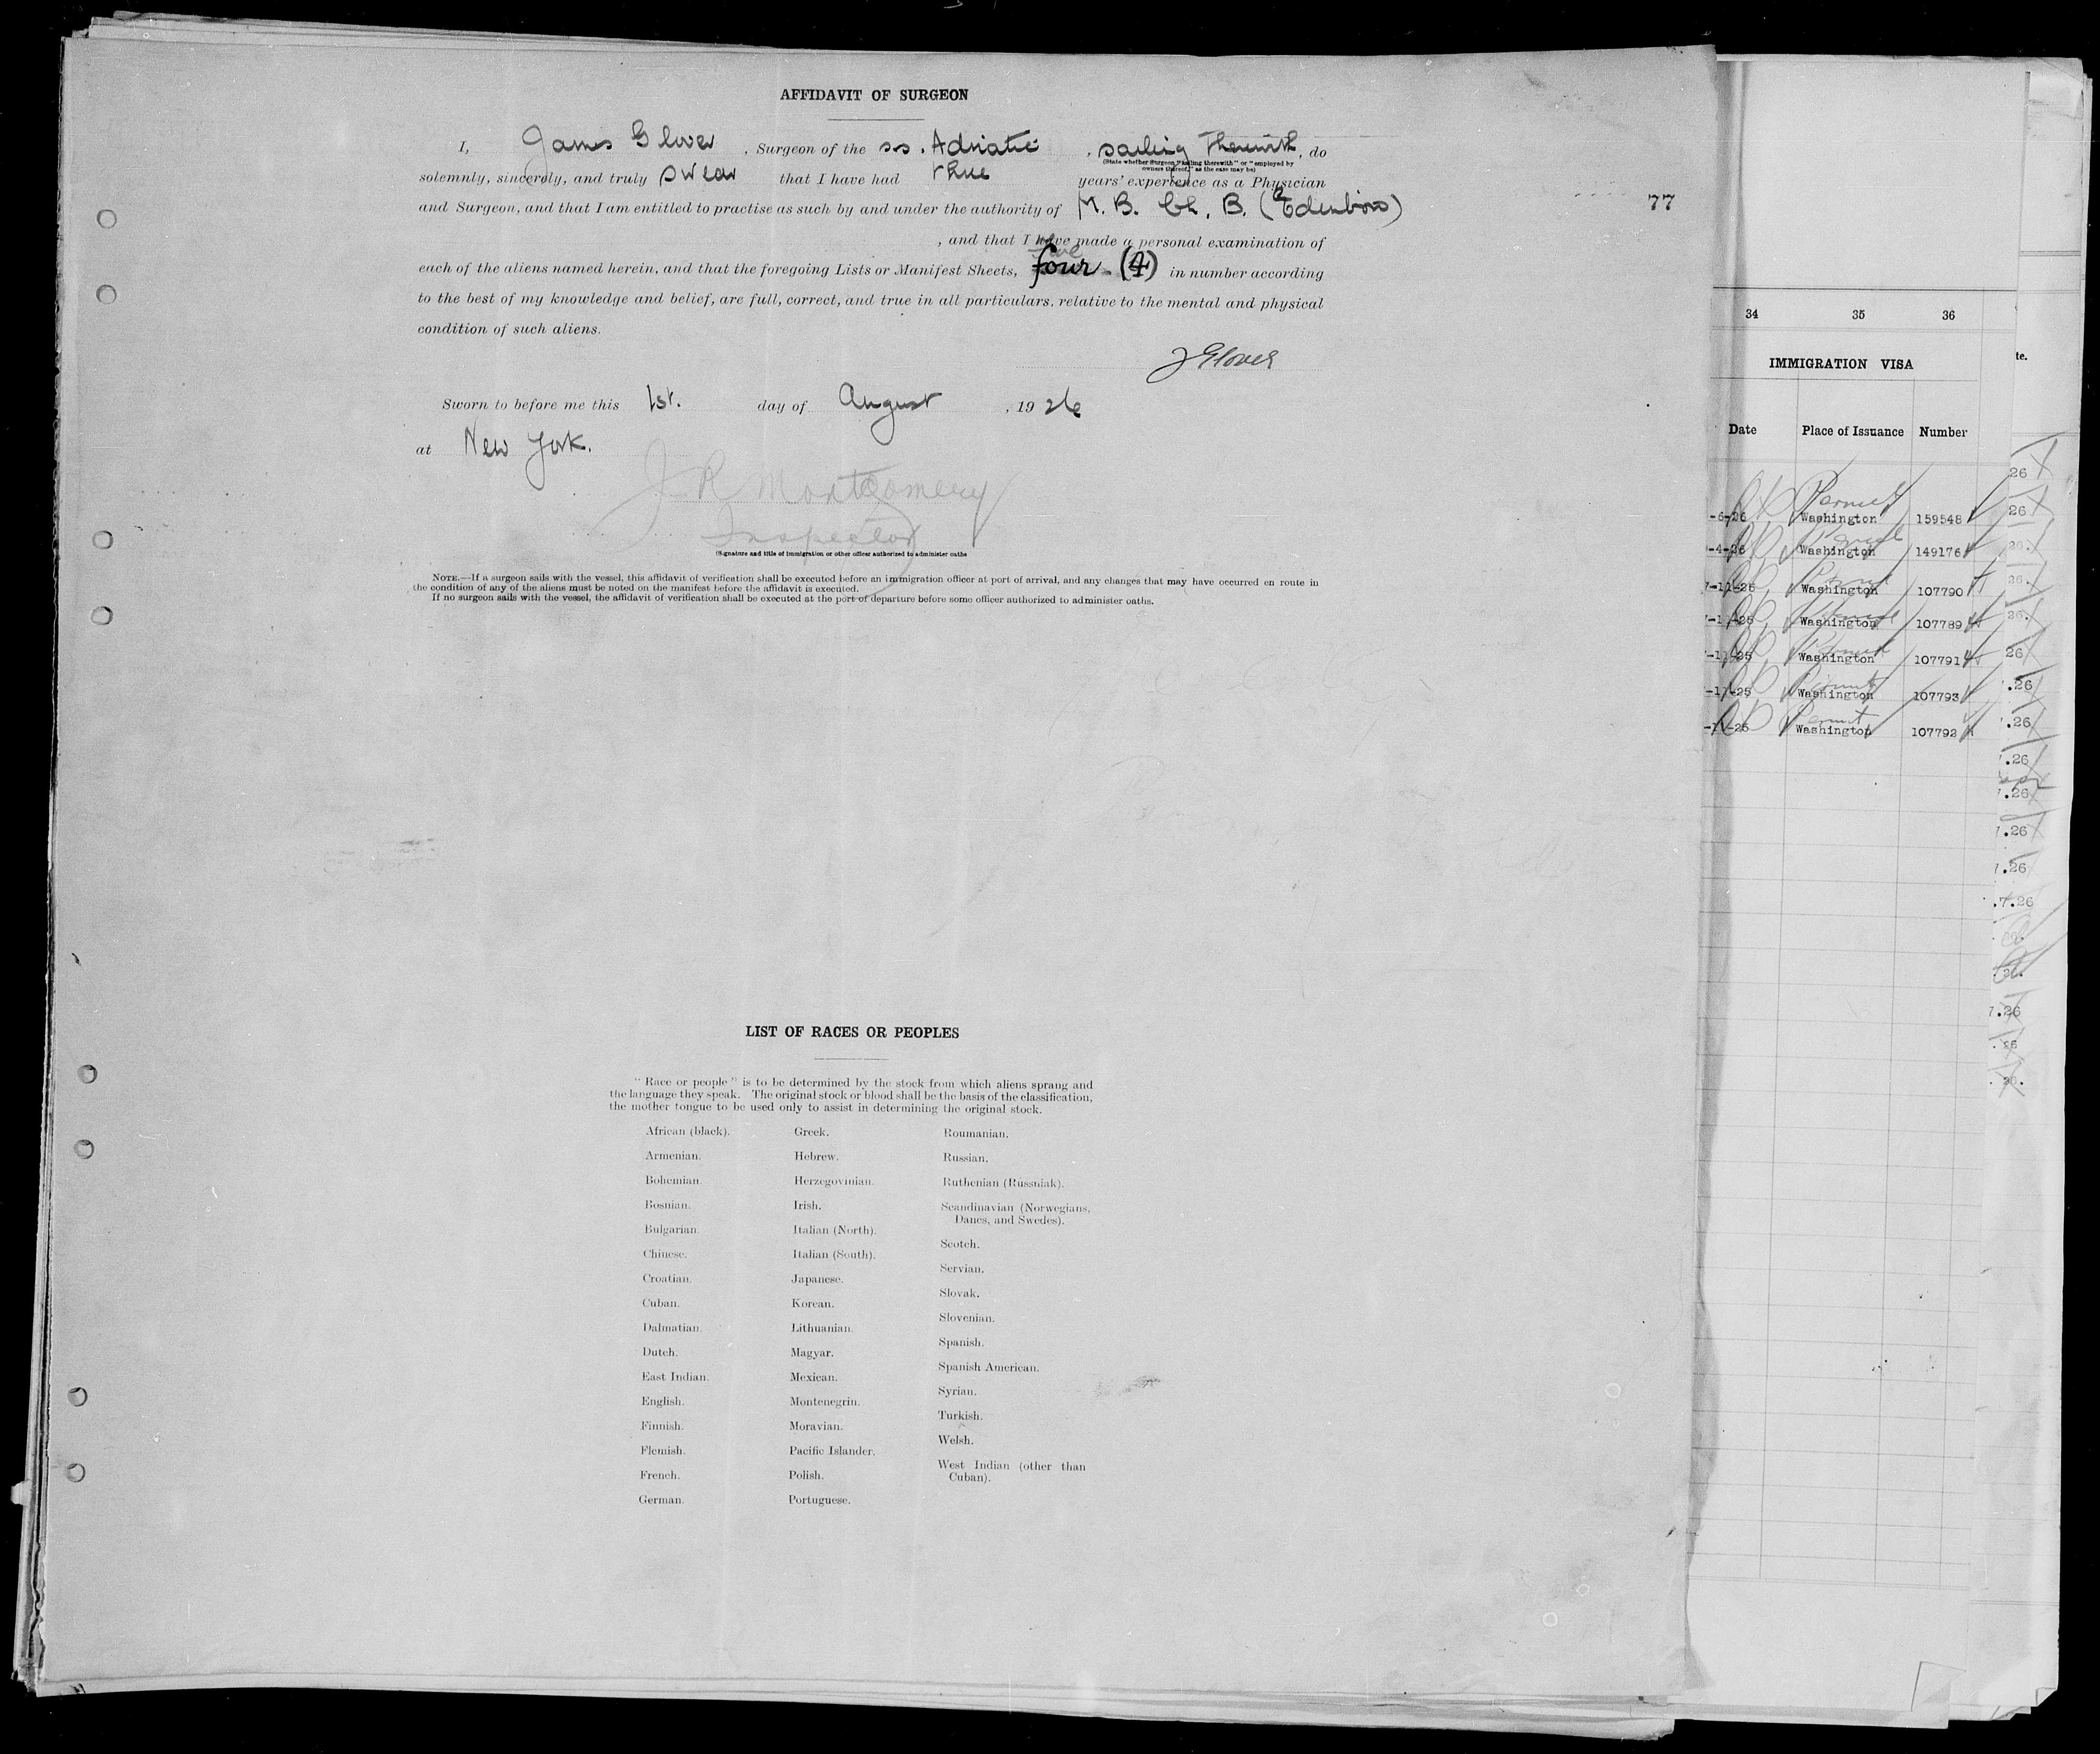 AFFIDAVIT OF SURGEON
I, James Glover, Surgeon of the s.s. Adriatic, sailing therewith, do
(State whether Surgeon "sailing therewith" or "employed by
owners thereof," as the case may be)
solemnly, sincerely, and truly swear that I have had three years' experience as a Physician
and Surgeon, and that I am entitled to practise as such by and under the authority of M. B. Ch. B. (Edenboro)
77
, and that I have made a personal examination of
each of the aliens named herein, and that the foregoing Lists or Manifest Sheets, four (4) in number according
to the best of my knowledge and belief, are full, correct, and true in all particulars, relative to the mental and physical
condition of such aliens.
J Glover
Sworn to before me this 1st. day of August, 1926
at New York.
J R Montgomery
Inspector
(Signature and title of immigration or other officer authorized to administer oaths
NOTE.—If a surgeon sails with the vessel, this affidavit of verification shall be executed before an immigration officer at port of arrival, and any changes that may have occurred en route in
the condition of any of the aliens must be noted on the manifest before the affidavit is executed.
If no surgeon sails with the vessel, the affidavit of verification shall be executed at the port of departure before some officer authorized to administer oaths.
LIST OF RACES OR PEOPLES
"Race or people" is to be determined by the stock from which aliens sprang and
the language they speak. The original stock or blood shall be the basis of the classification,
the mother tongue to be used only to assist in determining the original stock.
African (black).
Armenian.
Bohemian.
Bosnian.
Bulgarian.
Chinese.
Croatian.
Cuban.
Dalmatian.
Dutch.
East Indian.
English.
Finnish.
Flemish.
French.
German.
Greek.
Hebrew.
Herzegovinian.
Irish.
Italian (North).
Italian (South).
Japanese.
Korean.
Lithuanian.
Magyar.
Mexican.
Montenegrin.
Moravian.
Pacific Islander.
Polish.
Portuguese.
Roumanian.
Russian.
Ruthenian (Russniak).
Scandinavian (Norwegians,
Danes, and Swedes).
Scotch.
Servian.
Slovak.
Slovenian.
Spanish.
Spanish American.
Syrian.
Turkish.
Welsh.
West Indian (other than
Cuban).
34 35 36
IMMIGRATION VISA
te.
Date Place of Issuance Number
26
Permit
-6-26 Washington 159548 26
Permit
-4-26 Washington 149176 26.
Permit
7-11-25 Washington 107790 26.
Permit
-11-25 Washington 107789 26.
Permit
-11-25 Washington 107791 26
Permit
-11-25 Washington 107793 .26
Permit
-11-25 Washington 107792 .26
.26
.26
.26
7.26
.7.26
.26.
7.26
.26
.26.